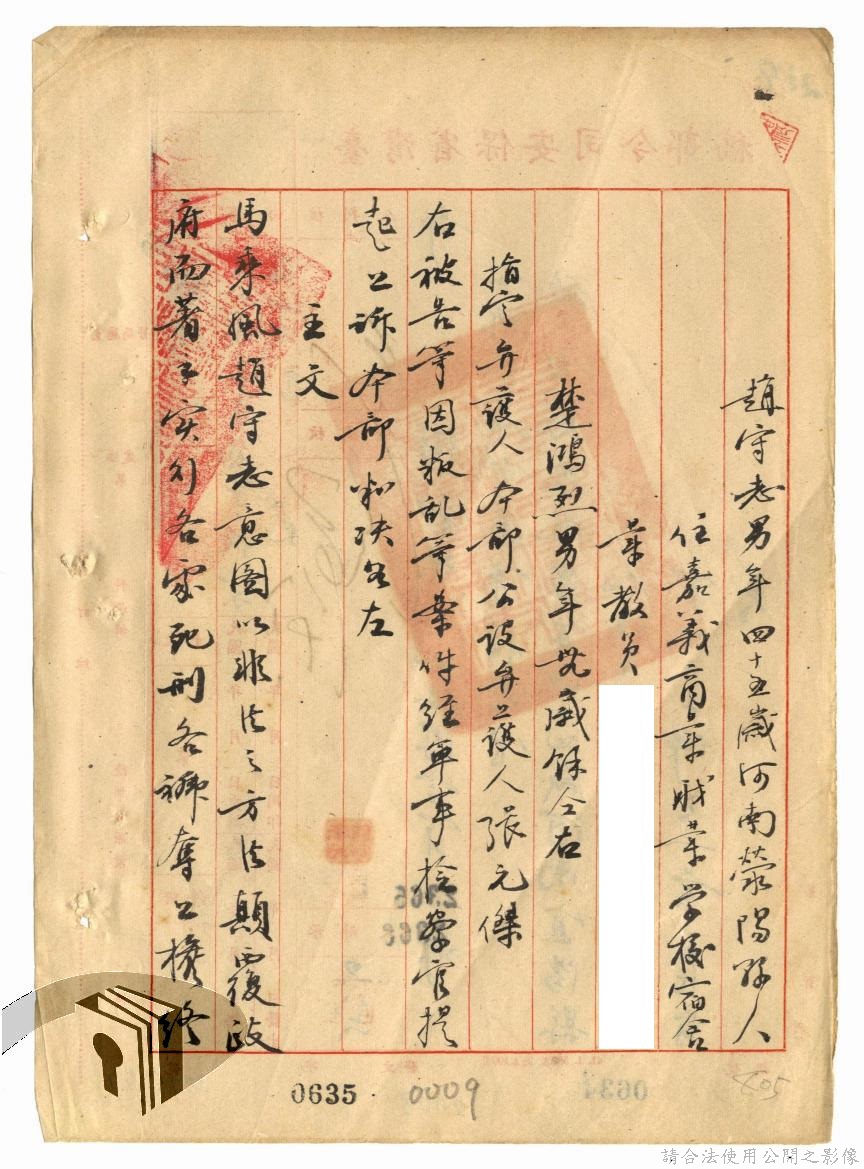 趙守志男年四十五歲河南滎陽縣人
住嘉義商業職業学校宿舍
業教員
楚鴻烈男年卅歲餘仝右
指定弁護人本部公設弁護人張元傑
右被告等因叛乱等案件経軍事檢察官提
起公訴本部判決如左
主文
馬乘風趙守志意圖以非法之方法顛覆政
府而著手实行各處死刑各褫奪公權終
0635
0009
605
請合法使用公開之影像